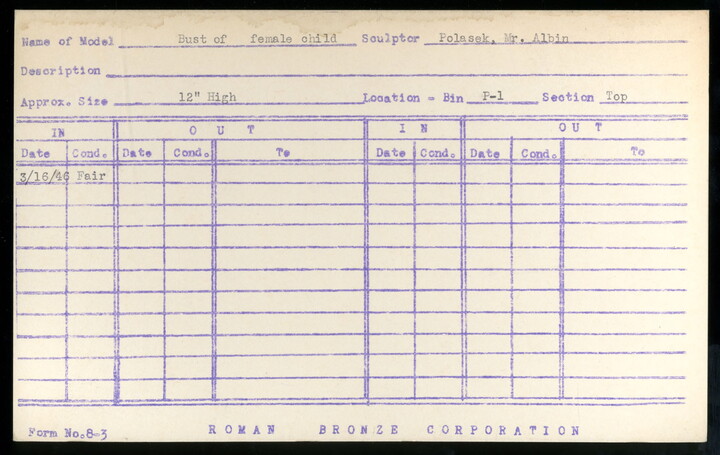 Name of Model Bust of female child Sculptor Polasek, Mr. Albin
Description
Approx. Size 12" High Location - Bin P-1 Section Top
IN OUT IN OUT
Date Cond. Date Cond. To Date Cond. Date Cond. To
3/16/46 Fair
Form No.8-3 ROMAN BRONZE CORPORATION